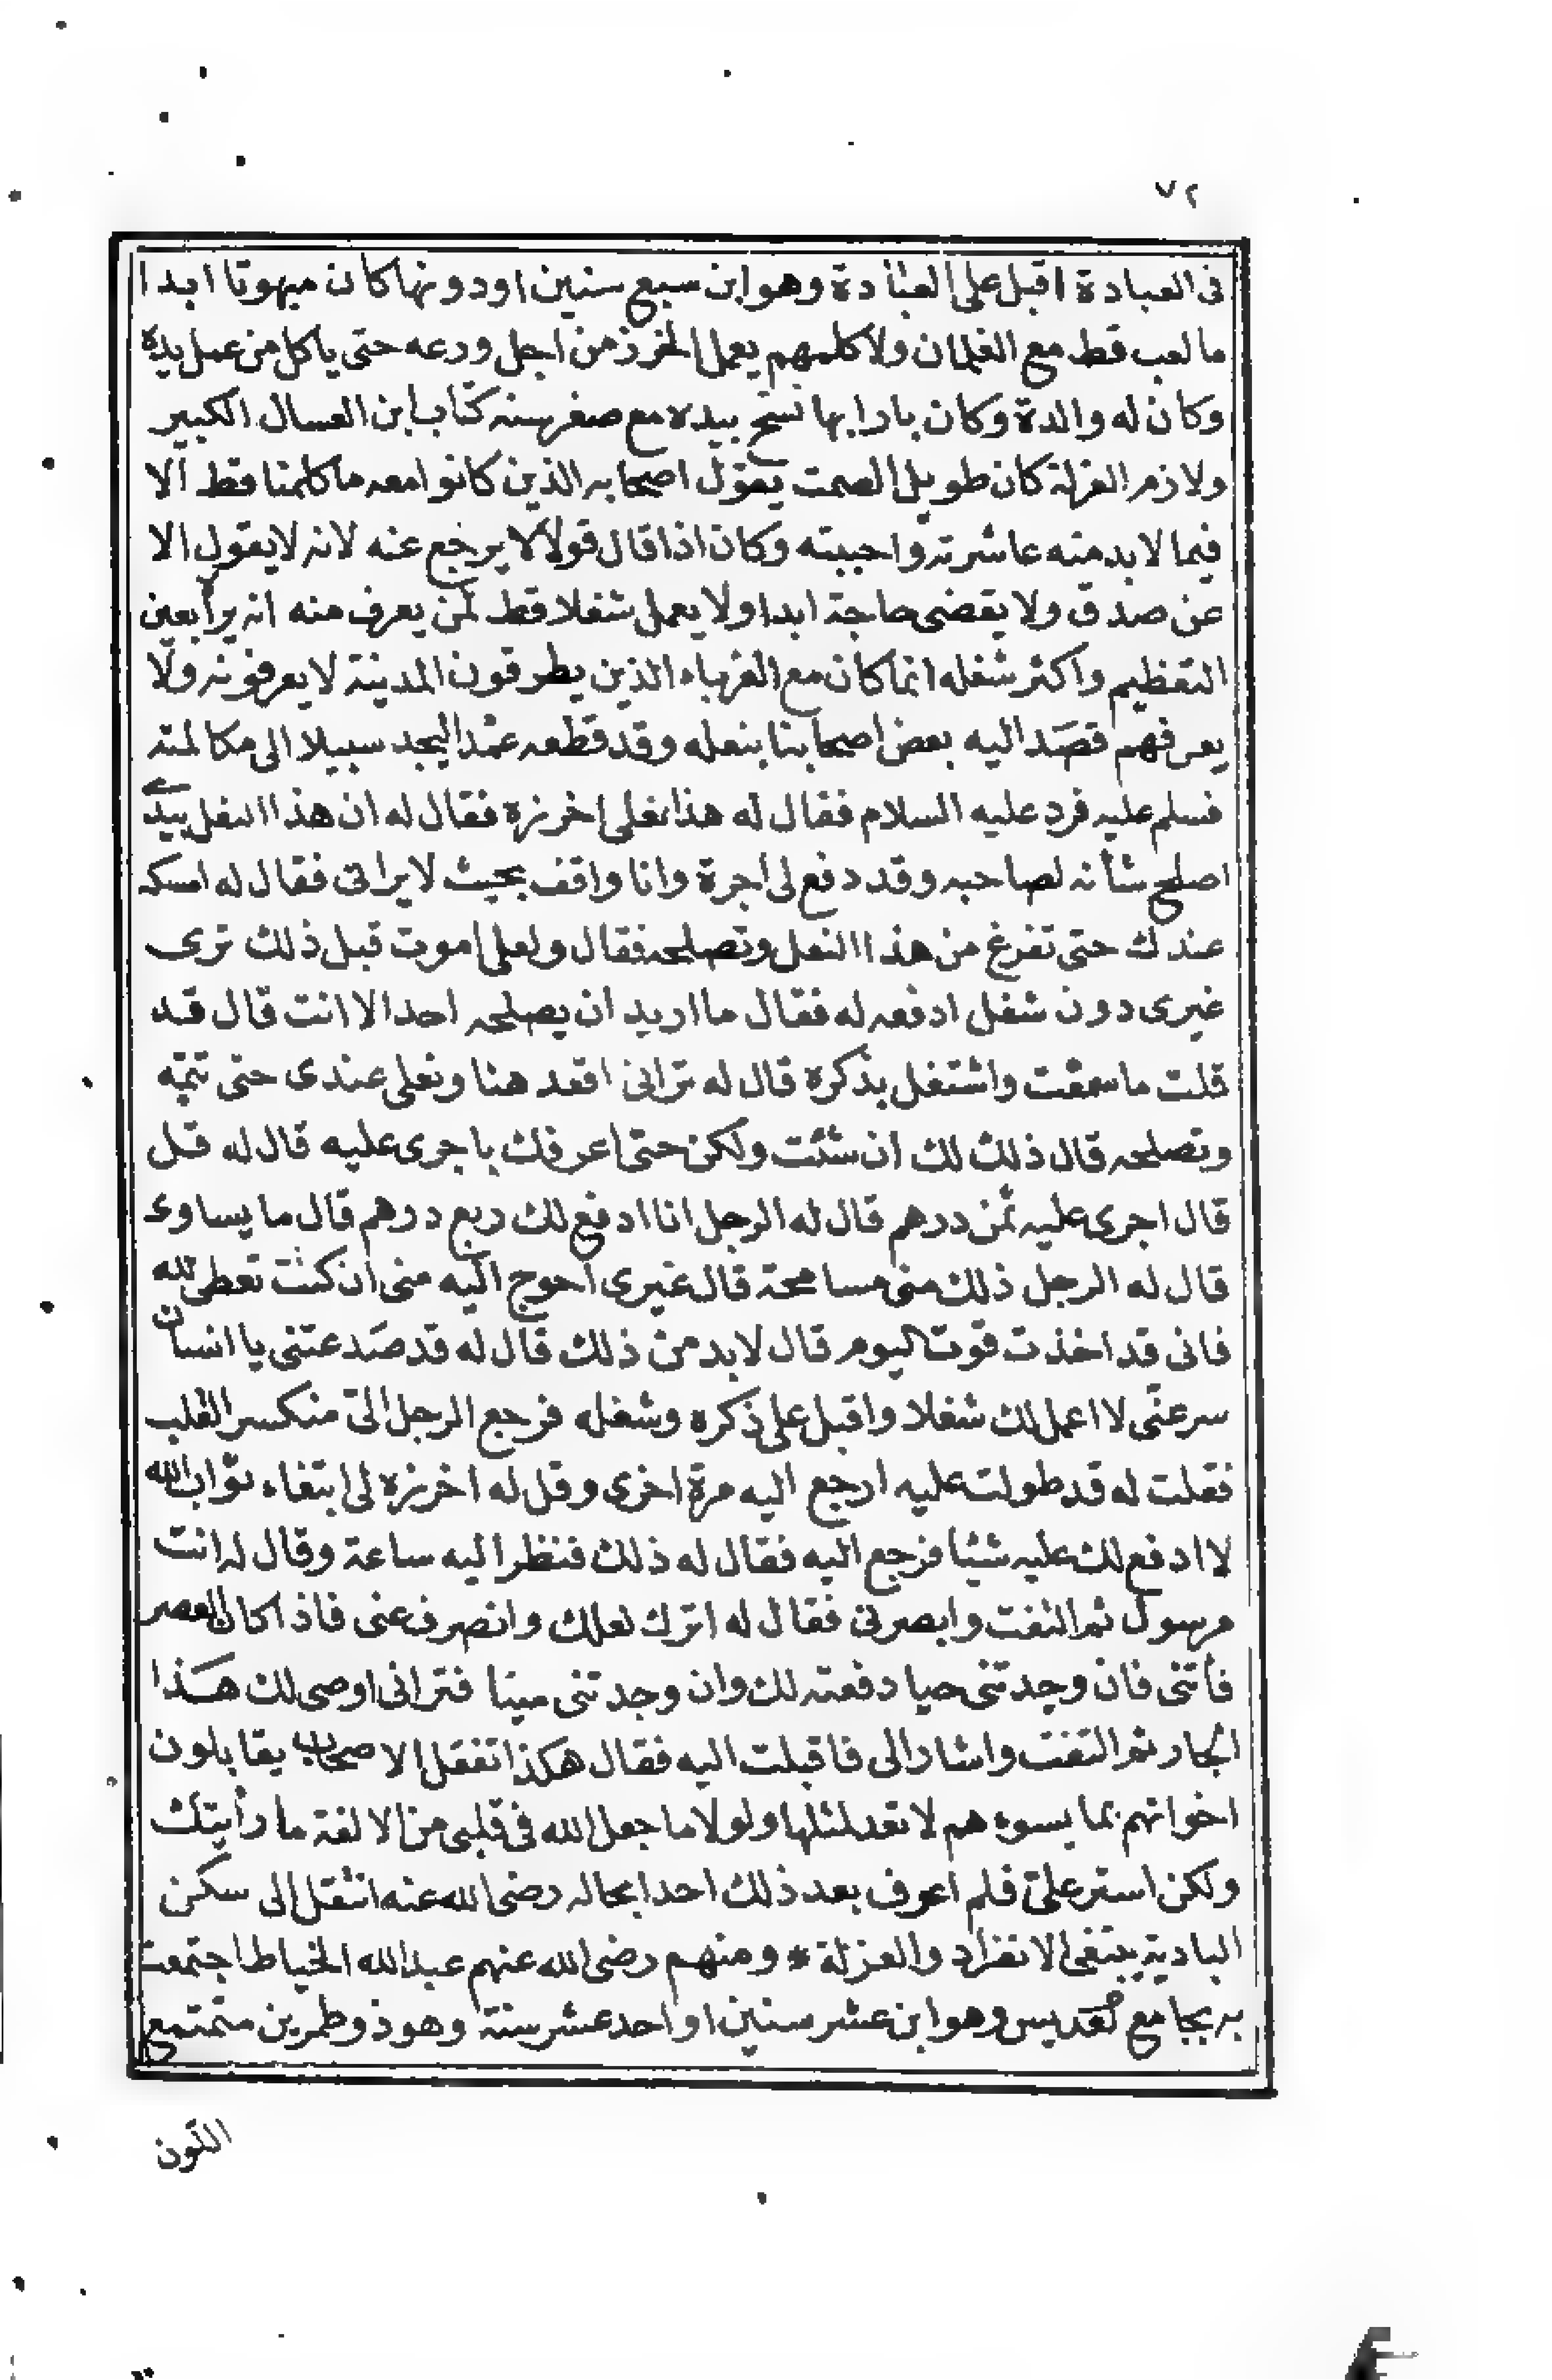 ٧٢
فى العبادة اقبل على العبادة وهو ابن سبع سنين او دونها كان مبهوتا ابدا
ما لعب قط مع الغلمان ولا كلمهم يعمل الخرز من اجل ورعه حتى ياكل من عمل يده
وكان له والدة وكان بارا بها نسخ بيده مع صغر سنه كتاب ابن العسال الكبير
ولازم العزلة كان طويل الصمت يقول اصحابه الذين كانوا معه ما كلمنا قط الا
فيما لا بد منه عاشرته واحببته وكان اذا قال قولا لا يرجع عنه لانه لا يقول الا
عن صدق ولا يقضى حاجة ابدا ولا يعمل شغلا قط لمن يعرف منه انه يراه بعين
التعظيم واكثر شغله انما كان مع الغرباء الذين يطرقون المدينة لا يعرفونه ولا
يعرفهم قصد اليه بعض اصحابنا بنعله وقد قطعه عمدا ليجد سبيلا الى مكالمته
فسلم عليه فرد عليه السلام فقال له هذا نعلى اخرزه فقال له ان هذا النعل بيدى
اصلح شأنه لصاحبه وقد دفع لى اجرة وانا واقف بحيث لا يرانى فقال له امسكه
عندك حتى تفرغ من هذا النعل وتصلحه فقال ولعلى اموت قبل ذلك ترى
غيرى دون شغل ادفعه له فقال ما اريد ان يصلحه احد الا انت قال قد
قلت ما سمعت واشتغل بذكره قال له ترانى اقعد هنا ونعلى عندى حتى تتمه
وتصلحه قال ذلك لك ان شئت ولكن حتى اعرفك باجرى عليه قال له قل
قال اجرى عليه ثمن درهم قال له الرجل انا ادفع لك ربع درهم قال ما يساوى
قال له الرجل ذلك منى مسامحة قال غيرى احوج اليه منى ان كنت تعطى لله
فانى قد اخذت قوت اليوم قال لا بد من ذلك قال له قد صدعتنى يا انسان
سر عنى لا اعمل لك شغلا واقبل على ذكره وشغله فرجع الرجل الى منكسر القلب
فقلت له قد طولت عليه ارجع اليه مرة اخرى وقل له اخرزه لى ابتغاء ثواب الله
لا ادفع لك عليه شيئا فرجع اليه فقال له ذلك فنظر اليه ساعة وقال له انت
مرسول ثم التفت وابصرنى فقال له اترك نعلك وانصرف عنى فاذا كان العصر
فأتنى فان وجدتنى حيا دفعته لك وان وجدتنى ميتا فترانى اوصى لك هذا
الجار ثم التفت واشار الى فاقبلت اليه فقال هكذا تفعل الاصحاب يقابلون
اخوانهم بما يسوءهم لا تعد لمثلها ولولا ما جعل الله فى قلبى من الالفة ما رأيتك
ولكن استر على فلم اعرف بعد ذلك احدا بحاله رضى الله عنه انتقل الى سكن
البادية يبتغى الانفراد والعزلة * ومنهم رضى الله عنهم عبد الله الخياط اجتمعت
به بجامع لعديس وهو ابن عشر سنين او احد عشر سنة وهو ذو طمرين متمتمع
اللون